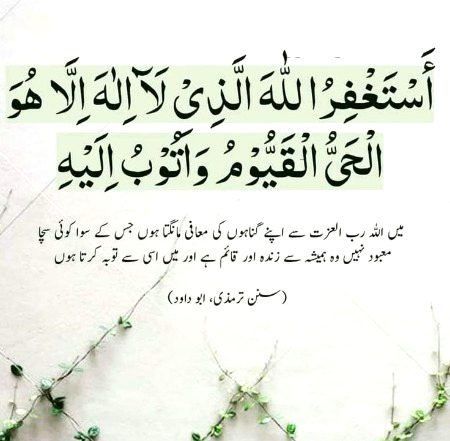 أَسْتَغْفِرُ اللّٰهَ الَّذِیْ لَآ اِلٰهَ اِلَّا هُوَ
الْحَیُّ الْقَیُّوْمُ وَاَتُوْبُ اِلَیْهِ
میں اللہ رب العزت سے اپنے گناہوں کی معافی مانگتا ہوں جس کے سوا کوئی سچا
معبود نہیں وہ ہمیشہ سے زندہ اور قائم ہے اور میں اسی سے توبہ کرتا ہوں
(سنن ترمذی، ابو داود)